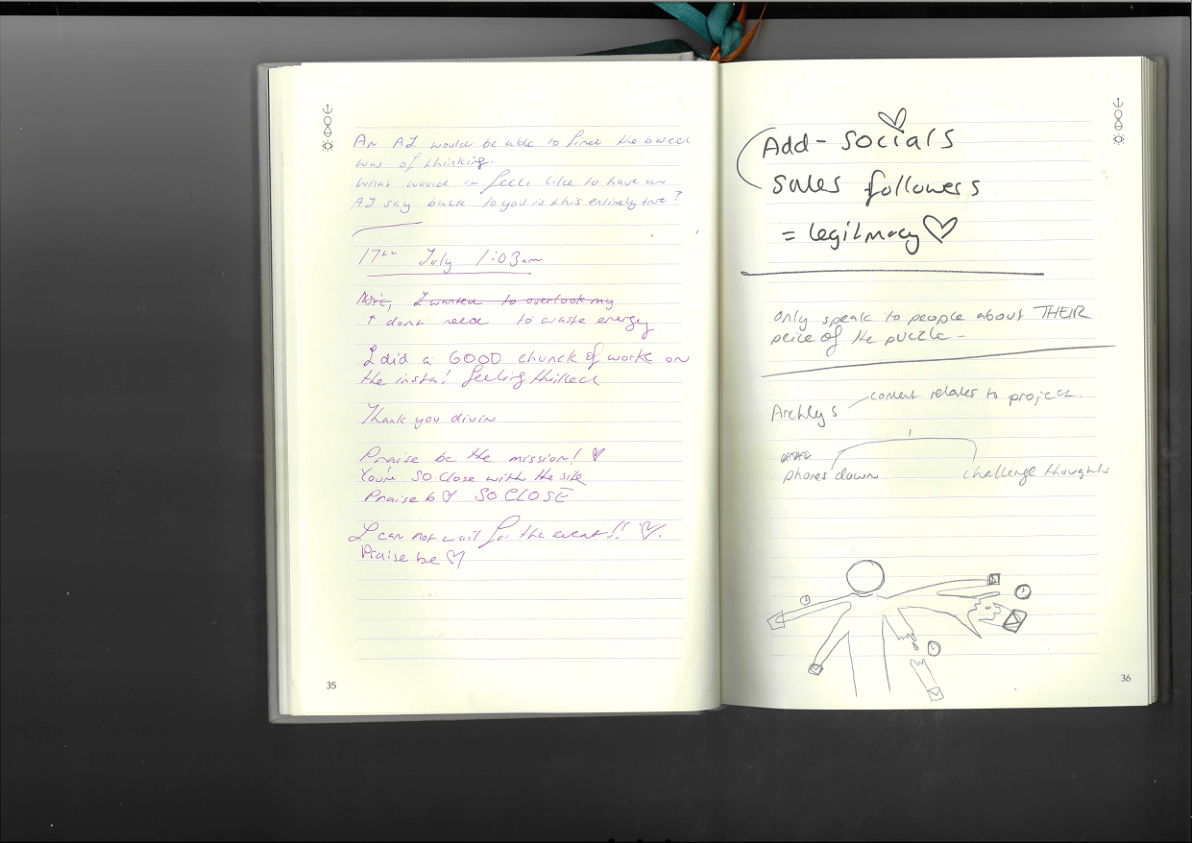 An AI would be able to find the
way of thinking.
What would it feel like to have an
AI say back to you is this entirely true?
17th July 1:03am
I wanted to overlook my
↑ dont need to waste energy
I did a GOOD chunck of work on
the insta! feeling thilled
Thank you divin
Praise be the mission! ♥
You're SO Close with the site
Praise b ♡ SO CLOSE
I can not wait for the event!! ♡.
Praise be ♡
35
Add - Socials
sales followers
= legitmacy ♡
Only speak to people about THEIR
peice of the puzzle -
content relates to project.
phones down challenge thoughts
36